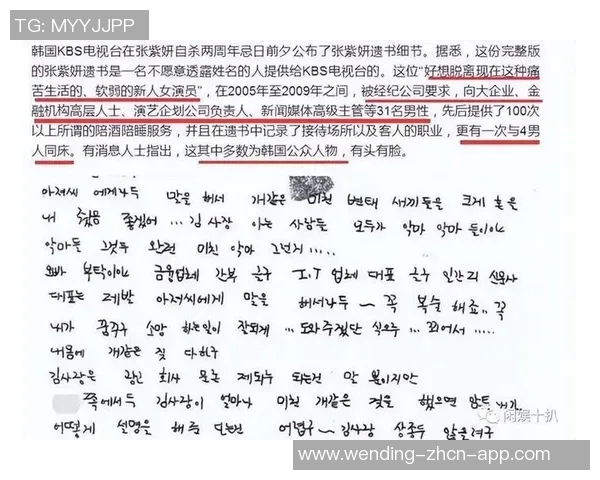 TG: MYYJJPP
韩国KBS电视台在张紫妍自杀两周年忌日前夕公布了张紫妍遗书细节。据悉，这份完整版
的张紫妍遗书是一名不愿意透露姓名的人提供给KBS电视台的。这位“好想脱离现在这种痛
苦生活的、软弱的新人女演员”，在2005年至2009年之间，被经纪公司要求，向大企业、金
融机构高层人士、演艺企划公司负责人、新闻媒体高级主管等31名男性，先后提供了100次
以上所谓的陪酒陪睡服务，并且在遗书中记录了接待场所以及客人的职业，更有一次与4男
人同床。有消息人士指出，这其中多数为韩国公众人物，有头有脸。
아저씨 에게라두 말을 해서 개같은 미친 변태 새끼들을 크게 혼을
내 줬음 좋겠어 ... 김사장 아는 사람들 모두가 악마 악마 들이야
악마두 그것두 완전 미친 악마
오빠 부탁이야 금융업체 간부 I.T 업체 대표 신문사
대표는 제발 아저씨에게 말을 해서라두 ~ 꼭 복수 해죠.. 꼭
내가 꿈꾸구 소망 하는일이 잘되게 ...
내몸에 개같은 짓 다하구
김사장은 광고 회사
쪽에서두 김사장이 얼마나 미친 개같은 것을 했으면
어떻게 설명을 해 어렵구 ~ 김사장
闲娱十扒
www.wending-zhcn-app.com